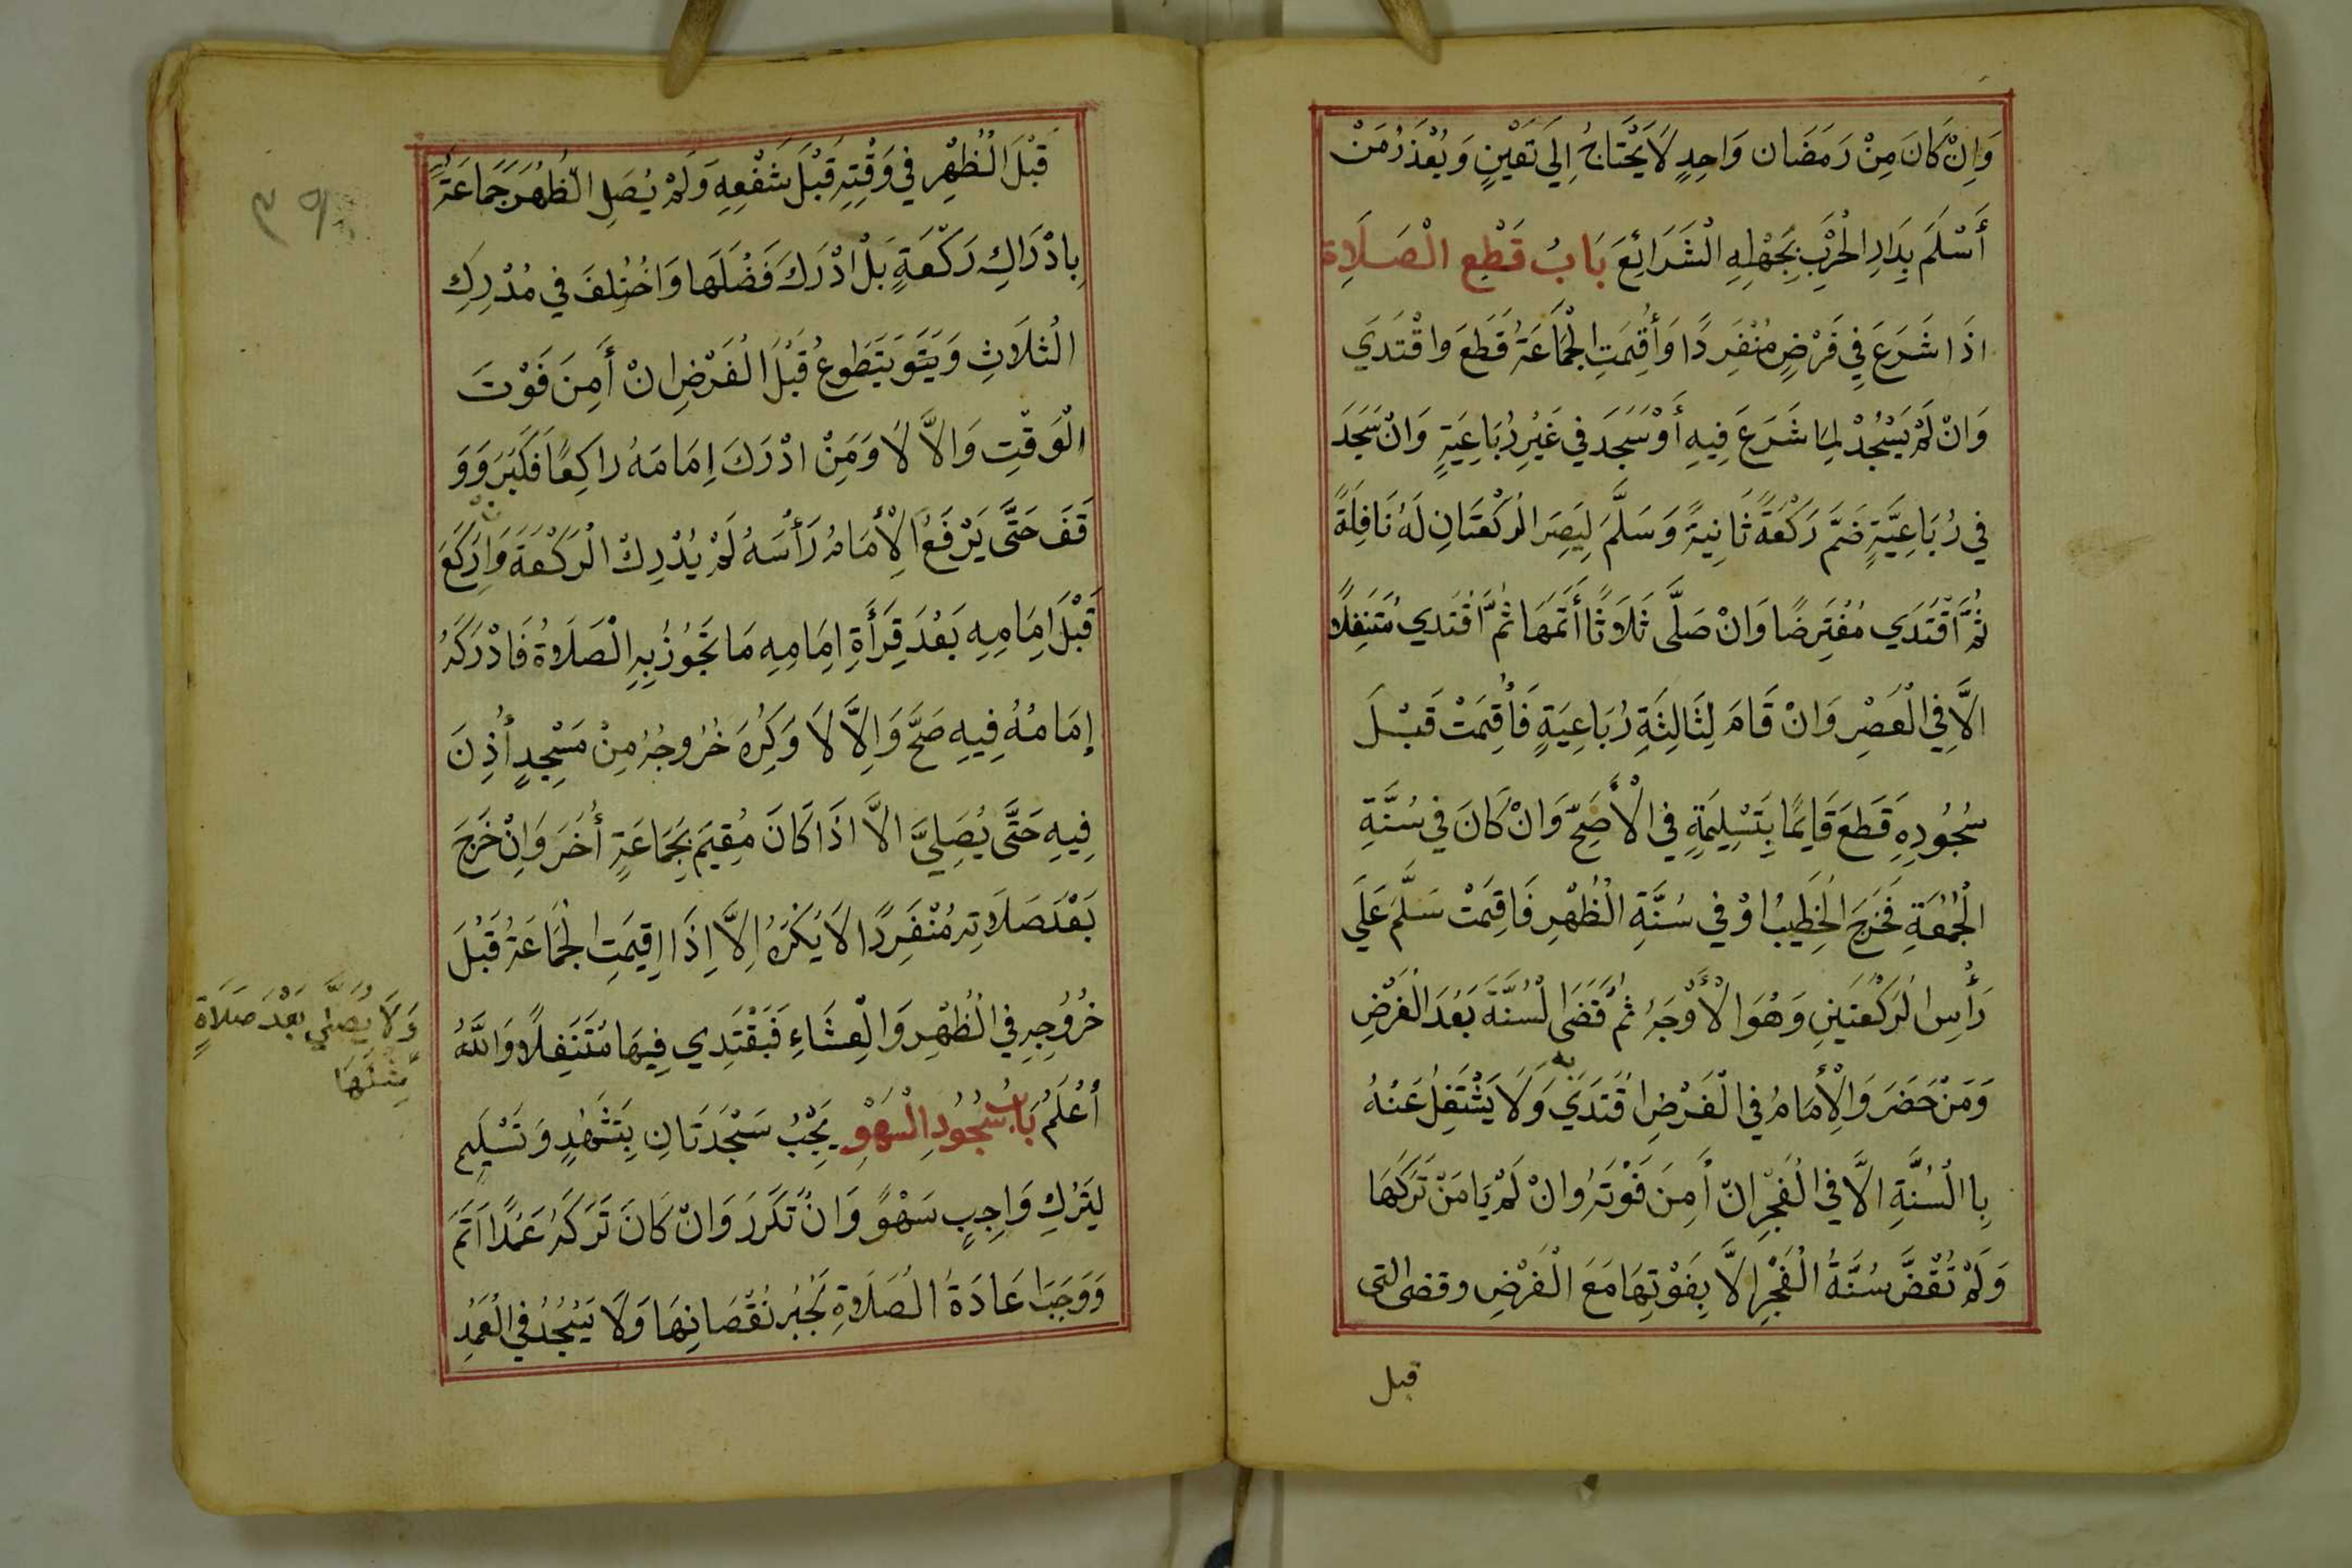 وَاِنْ كَانَ مِنْ رَمَضَان وَاحِدٍ لَا يَحْتَاجُ اِلَي تَعَيْنٍ وَيُعْذَرُ مَنْ
أَسْلَمَ بِدَارِ الْحَرْبِ بِجَهْلِهِ الْشَرَائِعَ بَابُ قَطْعِ الْصَلَاِة
اذَا شَرَعَ فِي فَرْضٍ مُنْفَرِدًا وَأُقِيمَتِ الْجَمَاعَةُ قَطَعَ وَاقْتَدَي
وَانْ لَمْ يَسْجُدْ لِمَا شَرَعَ فِيهِ أَوْ سَجَدَ فِي غَيْرِ رُبَاعِيَةٍ وَانْ سَجَدَ
فِي رُبَاعِيَّةٍ ضَمَّ رَكْعَةً ثَانِيَةً وَسَلَّمَ لِيَصِرَ الْرَكْعَتَانِ لَهُ نَافِلَةً
ثُمَّ اَقْتَدَي مُفْتَرِضًا وَانْ صَلَّى ثَلَاثًا أَتَمَهَا ثُمَّ اَقْتَدي مُتَنَفِلًا
الَّا فِي الْعَصْرِ وَانْ قَامَ لِثَالِثَةِ رُبَاعِيَةٍ فَأُقِيمَتْ قَبْلَ
سُجُودِهِ قَطَعَ قَايِمًا بِتَسْلِيمَةٍ فِي الْأَصَحِّ وَانْ كَانَ فِي سُنَّةِ
الْجُمُعَةِ فَخَرَجَ الْخَطِيبُ اوْ فِي سُنَّةِ الْظُهْرِ فَاقِيمَتْ سَلَّمَ عَلَي
رَأْسِ الْرَكْعَتَيْنِ وَهُوَ الْأَوْجَهُ ثُمَّ قَضَي الْسُنَّةَ بَعْدَ الْفَرْضِ
وَمَنْ حَضَرَ وَالْاِمَامُ فِي الْفَرْضِ اقْتَدَي بِهِ وَلَا يَشْتَغِلُ عَنْهُ
بِاالْسُنَّةِ الَّا فِي الْفَجْرِ انْ أَمِنَ فَوْتَهُ وَانْ لَمْ يَامَنْ تَرَكَهَا
وَلَمْ تُقْضَّ سُنَّةُ الْفَجْرِ الَّا بِفَوْتِهَا مَعَ الْفَرْضِ وقضى التى
قبل
قَبْلَ الْظُهْرِ فِي وَقْتِهِ قَبْلَ شَفْعِهِ وَلَمْ يُصَلِ الْظُهْرَ جَمَاعَةً
بِادْرَاكِ رَكْعَةٍ بَلْ ادْرَكَ فَضْلَهَا وَاخْتُلِفَ فِي مُدْرِكِ
الْثَلَاثِ وَيَتَوَيَتَطَوعُ قَبْلَ الْفَرْضِ انْ أَمِنَ فَوْتَ
الْوَقْتِ وَالَّا لَا وَمَنْ ادْرَكَ اِمَامَهُ رَاكِعًا فَكَبَرَ وَوَ
قَفَ حَتَّى يَرْفَعُ الْاِمَامُ رَأْسَهُ لَمْ يُدْرِكْ الْرَكْعَةَ وَانْ رَكَعَ
قَبْلَ اِمَامِهِ بَعْدَ قِرَأَةِ اِمَامِهِ مَا تَجُوزُ بِهِ الْصَلَاةُ فَادْرَكَهُ
إِمَامُهُ فِيهِ صَحَّ وَاِلَّا لَا وَكُرِهَ خُرُوجُهُ مِنْ مَسْجِدٍ أُذِنَ
فِيهِ حَتَّى يُصَلِيَّ الَّا اذَا كَانَ مُقِيمَ بِجَمَاعَةٍ أُخَرَ وَاِنْ خَرَجَ
بَعْدَ صَلَاتِهِ مُنْفَرِدًا لَا يُكْرَهُ اِلَّا اِذَا اقِيمَتِ الْجَمَاعَةُ قَبْلَ
خُرُوجِهِ فِي الْظُهْرِ وَالْعِشَاءِ فَبَقْتَدِي فِيهَا مُتَنَفِلًا وَاللَّهُ
أعْلَمُ بَابُ سُجُودِ الْسَهْوِ يَجِبُ سَجْدَتَانِ بِتَشَهُدٍ وَتَسْلِيمٍ
لِتَرْكِ وَاجِبٍ سَهْوً وَانْ تَكَرَرَ وَانْ كَانَ تَرَكَهُ عَمْدًا اَثَمَ
وَوَجَبَ اعَادَةُ الْصَلَاوةِ لِجُبُرِ نُقْصَانِهَا وَلَا يَسْجُدُ فِي الْعَمْدِ
وَلَا يُصَلَّي بَعْدَ صَلَاةٍ
مِثْلَهَا